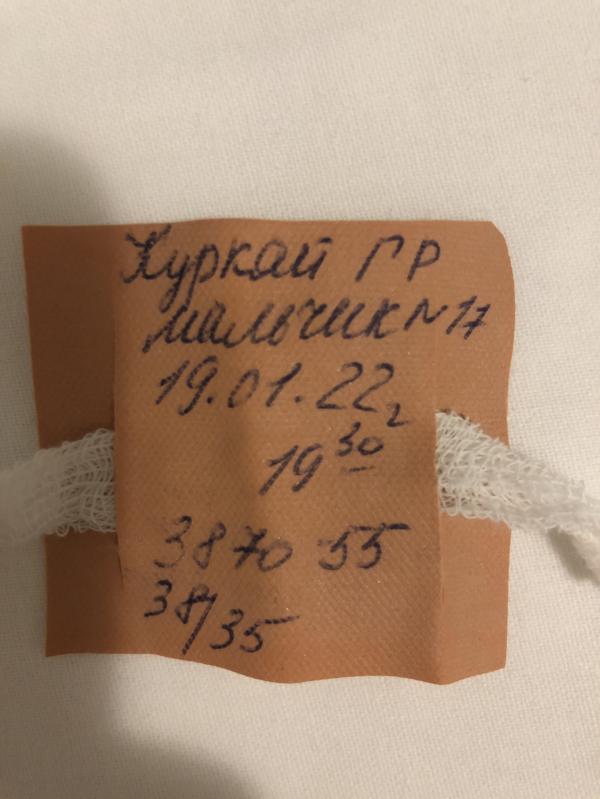 Куркай ГР
мальчик N 17
19.01.22г
19 30
3870 55
38/35